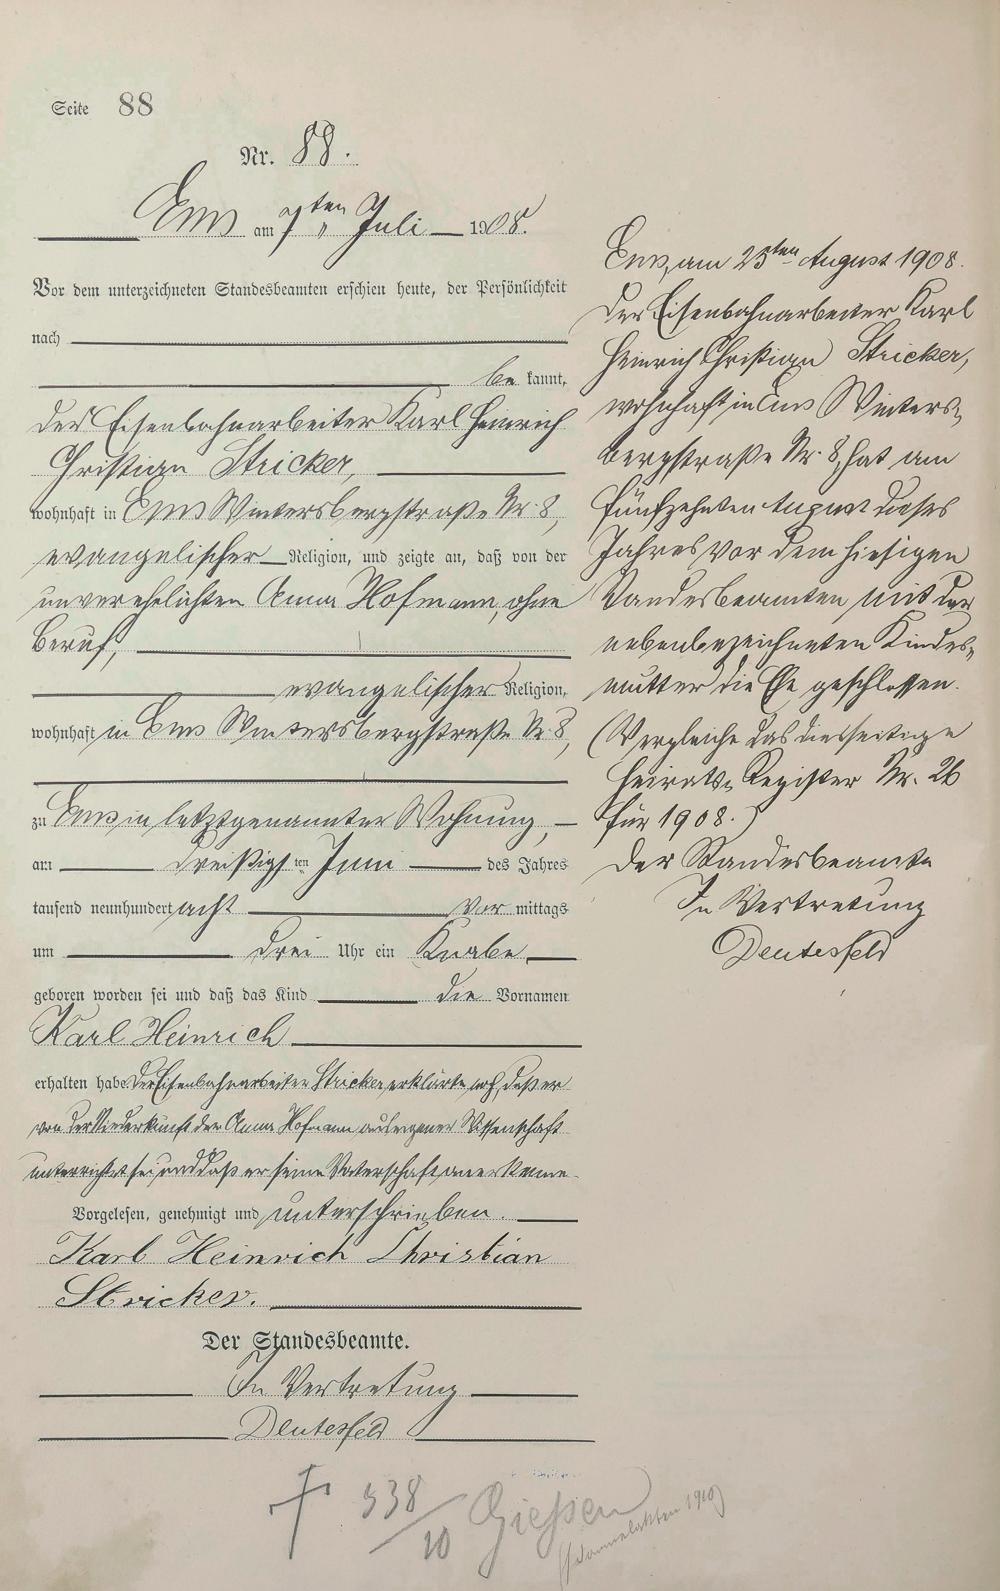 Seite 88
Nr. 88.
Ems am 7ten Juli 1908.
Vor dem unterzeichneten Standesbeamten erschien heute, der Persönlichkeit
nach
be kannt,
der Eisenbahnarbeiter Karl Heinrich
Christian Stricker,
wohnhaft in Ems Wintersbergstraße Nr. 8,
evangelischer Religion, und zeigte an, daß von der
unverehelichten Anna Hofmann, ohne
Beruf,
evangelischer Religion,
wohnhaft in Ems Wintersbergstraße Nr. 8,
zu Ems in letztgenannter Wohnung,
am dreißigsten Juni des Jahres
tausend neunhundert acht vor mittags
um drei Uhr ein Knabe
geboren worden sei und daß das Kind die Vornamen
Karl Heinrich
erhalten habe. Der Eisenbahnarbeiter Stricker erklärte noch, daß er
von der Niederkunft der Anna Hofmann aus eigener Wissenschaft
unterrichtet sei und daß er seine Vaterschaft anerkenne.
Vorgelesen, genehmigt und unterschrieben.
Karl Heinrich Christian
Stricker.
Der Standesbeamte.
In Vertretung
Deutesfeld
† 538/10 Gießen
(Sammelakten 1910)
Ems, am 25ten August 1908.
Der Eisenbahnarbeiter Karl
Heinrich Christian Stricker,
wohnhaft in Ems Winters-
bergstraße Nr. 8, hat am
fünfzehnten August dieses
Jahres vor dem hiesigen
Standesbeamten mit der
nebenbezeichneten Kindes-
mutter die Ehe geschlossen.
(Vergleiche das diesseitige
Heirats-Register Nr. 26
für 1908.)
Der Standesbeamte
In Vertretung
Deutesfeld